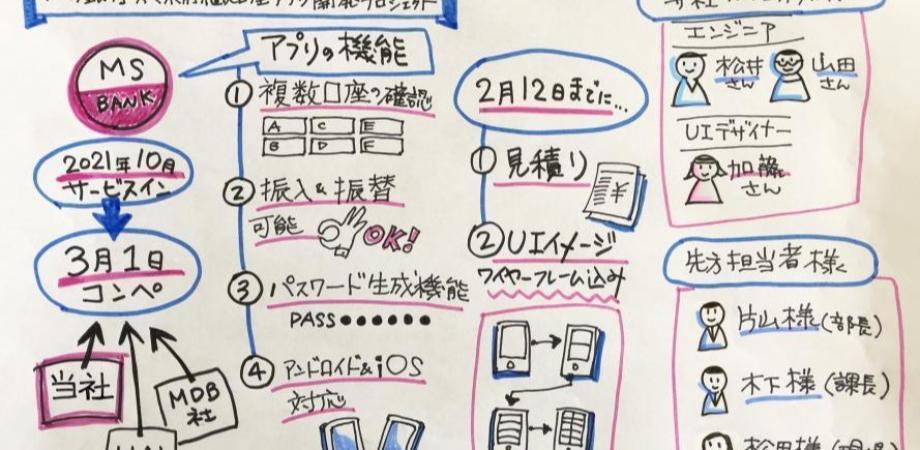 開発プロジェクト
MS
BANK
2021年10月
サービスイン
3月1日
コンペ
当社
MDB
社
アプリの機能
① 複数口座の確認
A C E
B D F
② 振入&振替
可能 OK!
③ パスワード生成機能
PASS●●●●●●
④ アンドロイド&iOS
対応
2月12日までに…
① 見積り
¥
② UIイメージ
ワイヤーフレーム込み
エンジニア
松井
さん
山田
さん
UIデザイナー
加藤
さん
先方担当者様
片山様(部長)
木下様(課長)
松田様